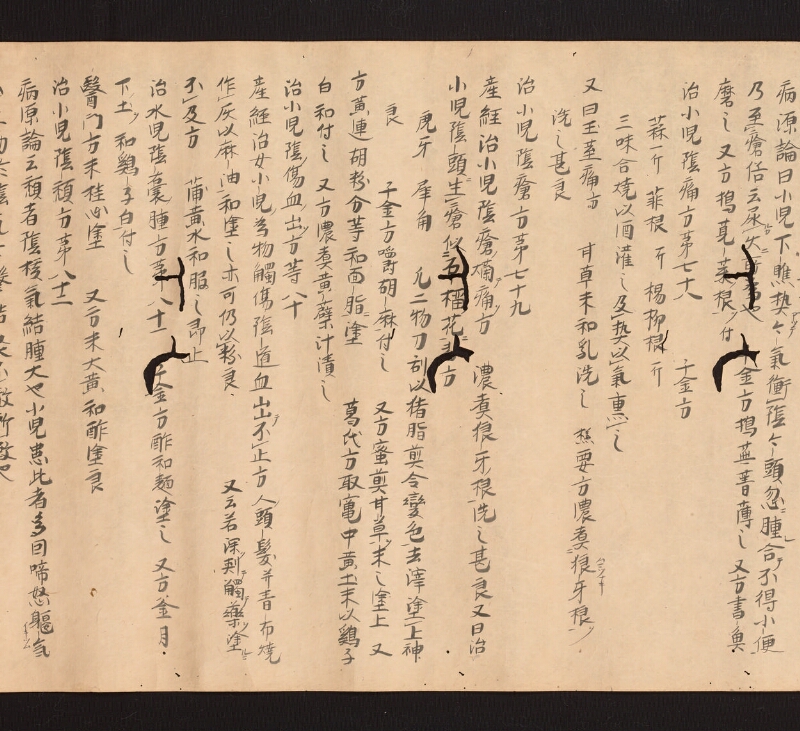 病源論曰小児下焦熱々氣衝陰々頭忽腫合不得小便
乃至瘡俗云尿
磨之 又方搗莧菜根付 千金方搗蕪菁薄之 又方書魚
治小児陰痛方第七十八 千金方
蒜一斤 韮根一斤 楊柳根一斤
三味合燒以酒灌之及熱以氣熏之
又曰玉茎痛方 甘草末和乳洗之 葱要方濃煮狼牙根
洗之甚良
治小児陰瘡方第七十九
産經治小児陰瘡爛痛方 濃煮狼牙根洗之甚良 又曰治
小児陰頭生瘡似石榴花 方
虎牙 犀角 凡二物刀刮以猪脂煎令變色去滓塗上神
良 千金方嚼胡麻付之 又方蜜煎甘草末之塗上 又
方黄連胡粉分等和面脂塗 葛氏方取竃中黄土末以鷄子
白和付之 又方濃煮黄蘗汁漬之
治小児陰傷血出方第八十
産經治女小児為物觸傷陰道血出不止方 人頭髪并青布燒
作灰以麻油和塗之亦可仍以粉良 又云若深刺觸藥塗
不及方 蒲黄水和服之即止
治小児陰囊腫方第八十一 千金方酢和麺塗之 又方釜月
下土和鷄子白付之
醫門方末桂心塗 又方末大黄和酢塗良
治小児陰㿗方第八十二
病源論云㿗者陰核氣結腫大也小児患此者多因啼怒軀氣